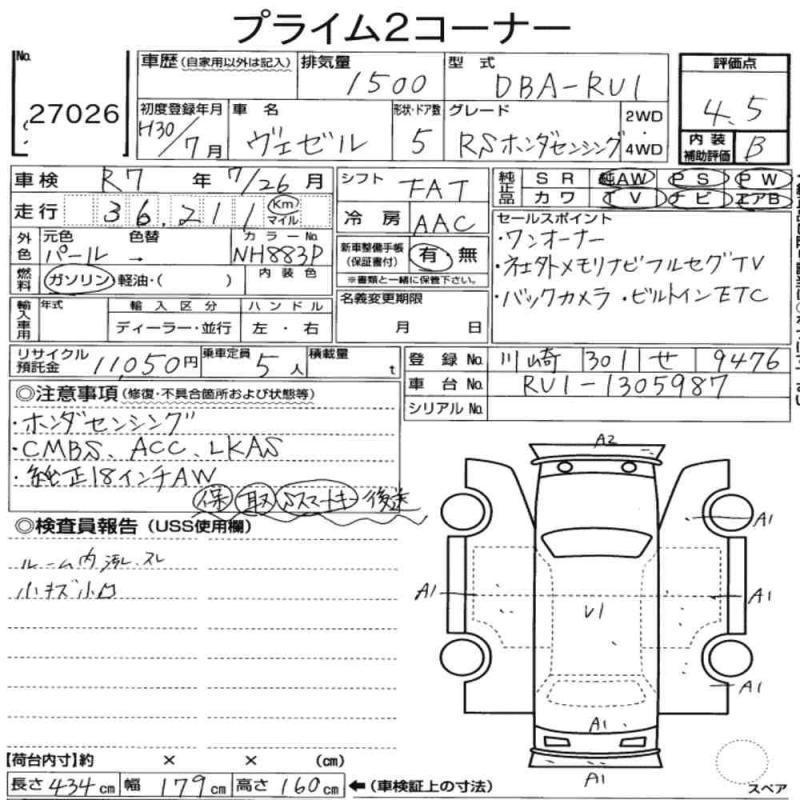 プライム2コーナー
No.
27026
車歴 (自家用以外は記入)
排気量
1500
型式
DBA-RU1
初度登録年月
H30/7月
車名
ヴェゼル
形状・ドア数
5
グレード
RSホンダセンシング
2WD
・
4WD
評価点
4.5
内装
補助評価
B
車検 R7 年 7/26 月
走行 36,211 Km マイル
外色
元色 色替 カラーNo.
パール → NH883P
燃料
ガソリン 軽油・( )
内装色
輸入車用
年式
輸入区分
ディーラー・並行
ハンドル
左・右
シフト FAT
冷房 AAC
新車整備手帳
(保証書付)
有・無
※書類と一緒に保管下さい。
名義変更期限
月 日
純正品
SR 純AW PS PW
カワ TV ナビ エアB
セールスポイント
・ワンオーナー
・社外メモリナビフルセグTV
・バックカメラ・ビルトインETC
リサイクル
預託金
11,050円
乗車定員 5人
積載量 t
登録No. 川崎 301 せ 9476
車台No. RU1-1305987
シリアルNo.
◎注意事項 (修復・不具合箇所および状態等)
・ホンダセンシング
・CMBS、ACC、LKAS
・純正18インチAW
保 取 Sスマートキー 後送
◎検査員報告 (USS使用欄)
ルーム内汚レ、スレ
小キズ小凹
A2
A1
A1
A1
U1
A1
A1
A1
スペア
【荷台内寸】約 × × (cm)
長さ 434cm 幅 179cm 高さ 160cm ←(車検証上の寸法)